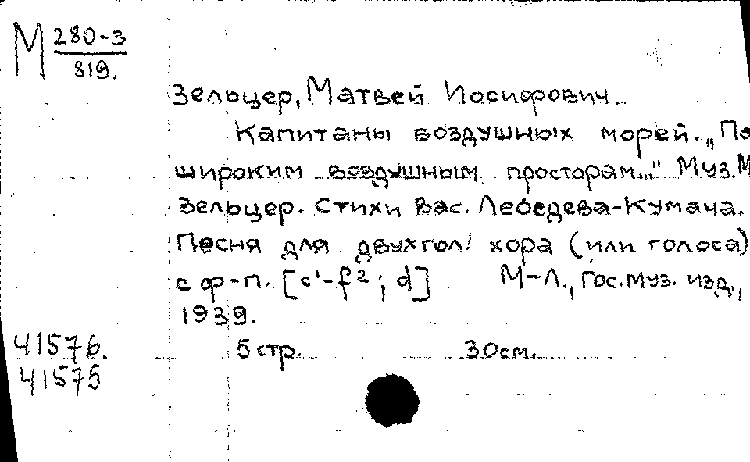 М 280-3
819.
Зельцер, Матвей Иосифович.
Капитаны воздушных морей. „По
широким воздушным просторам..." Муз. М
Зельцер. Стихи Вас. Лебедева-Кумача.
Песня для двухгол. хора (или голоса)
с ф-п. [c'-f²; d] М-Л., Гос. муз. изд.,
1939.
41576. 5 стр. 30см.
41575